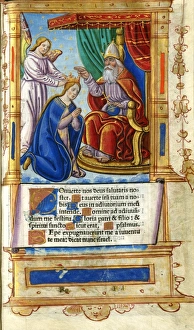 Onuerte nos deus salutaris no
ster: & auerte iram tuam a no
bis. Deus in adiutorium meum
intende. Domine ad adiuuan
dum me festina. Gloria patri & filio: &
spiritui sancto. Sicut erat. psalmus.
Epe expugnauerunt me a iuuentu
te mea: dicat nunc israel.